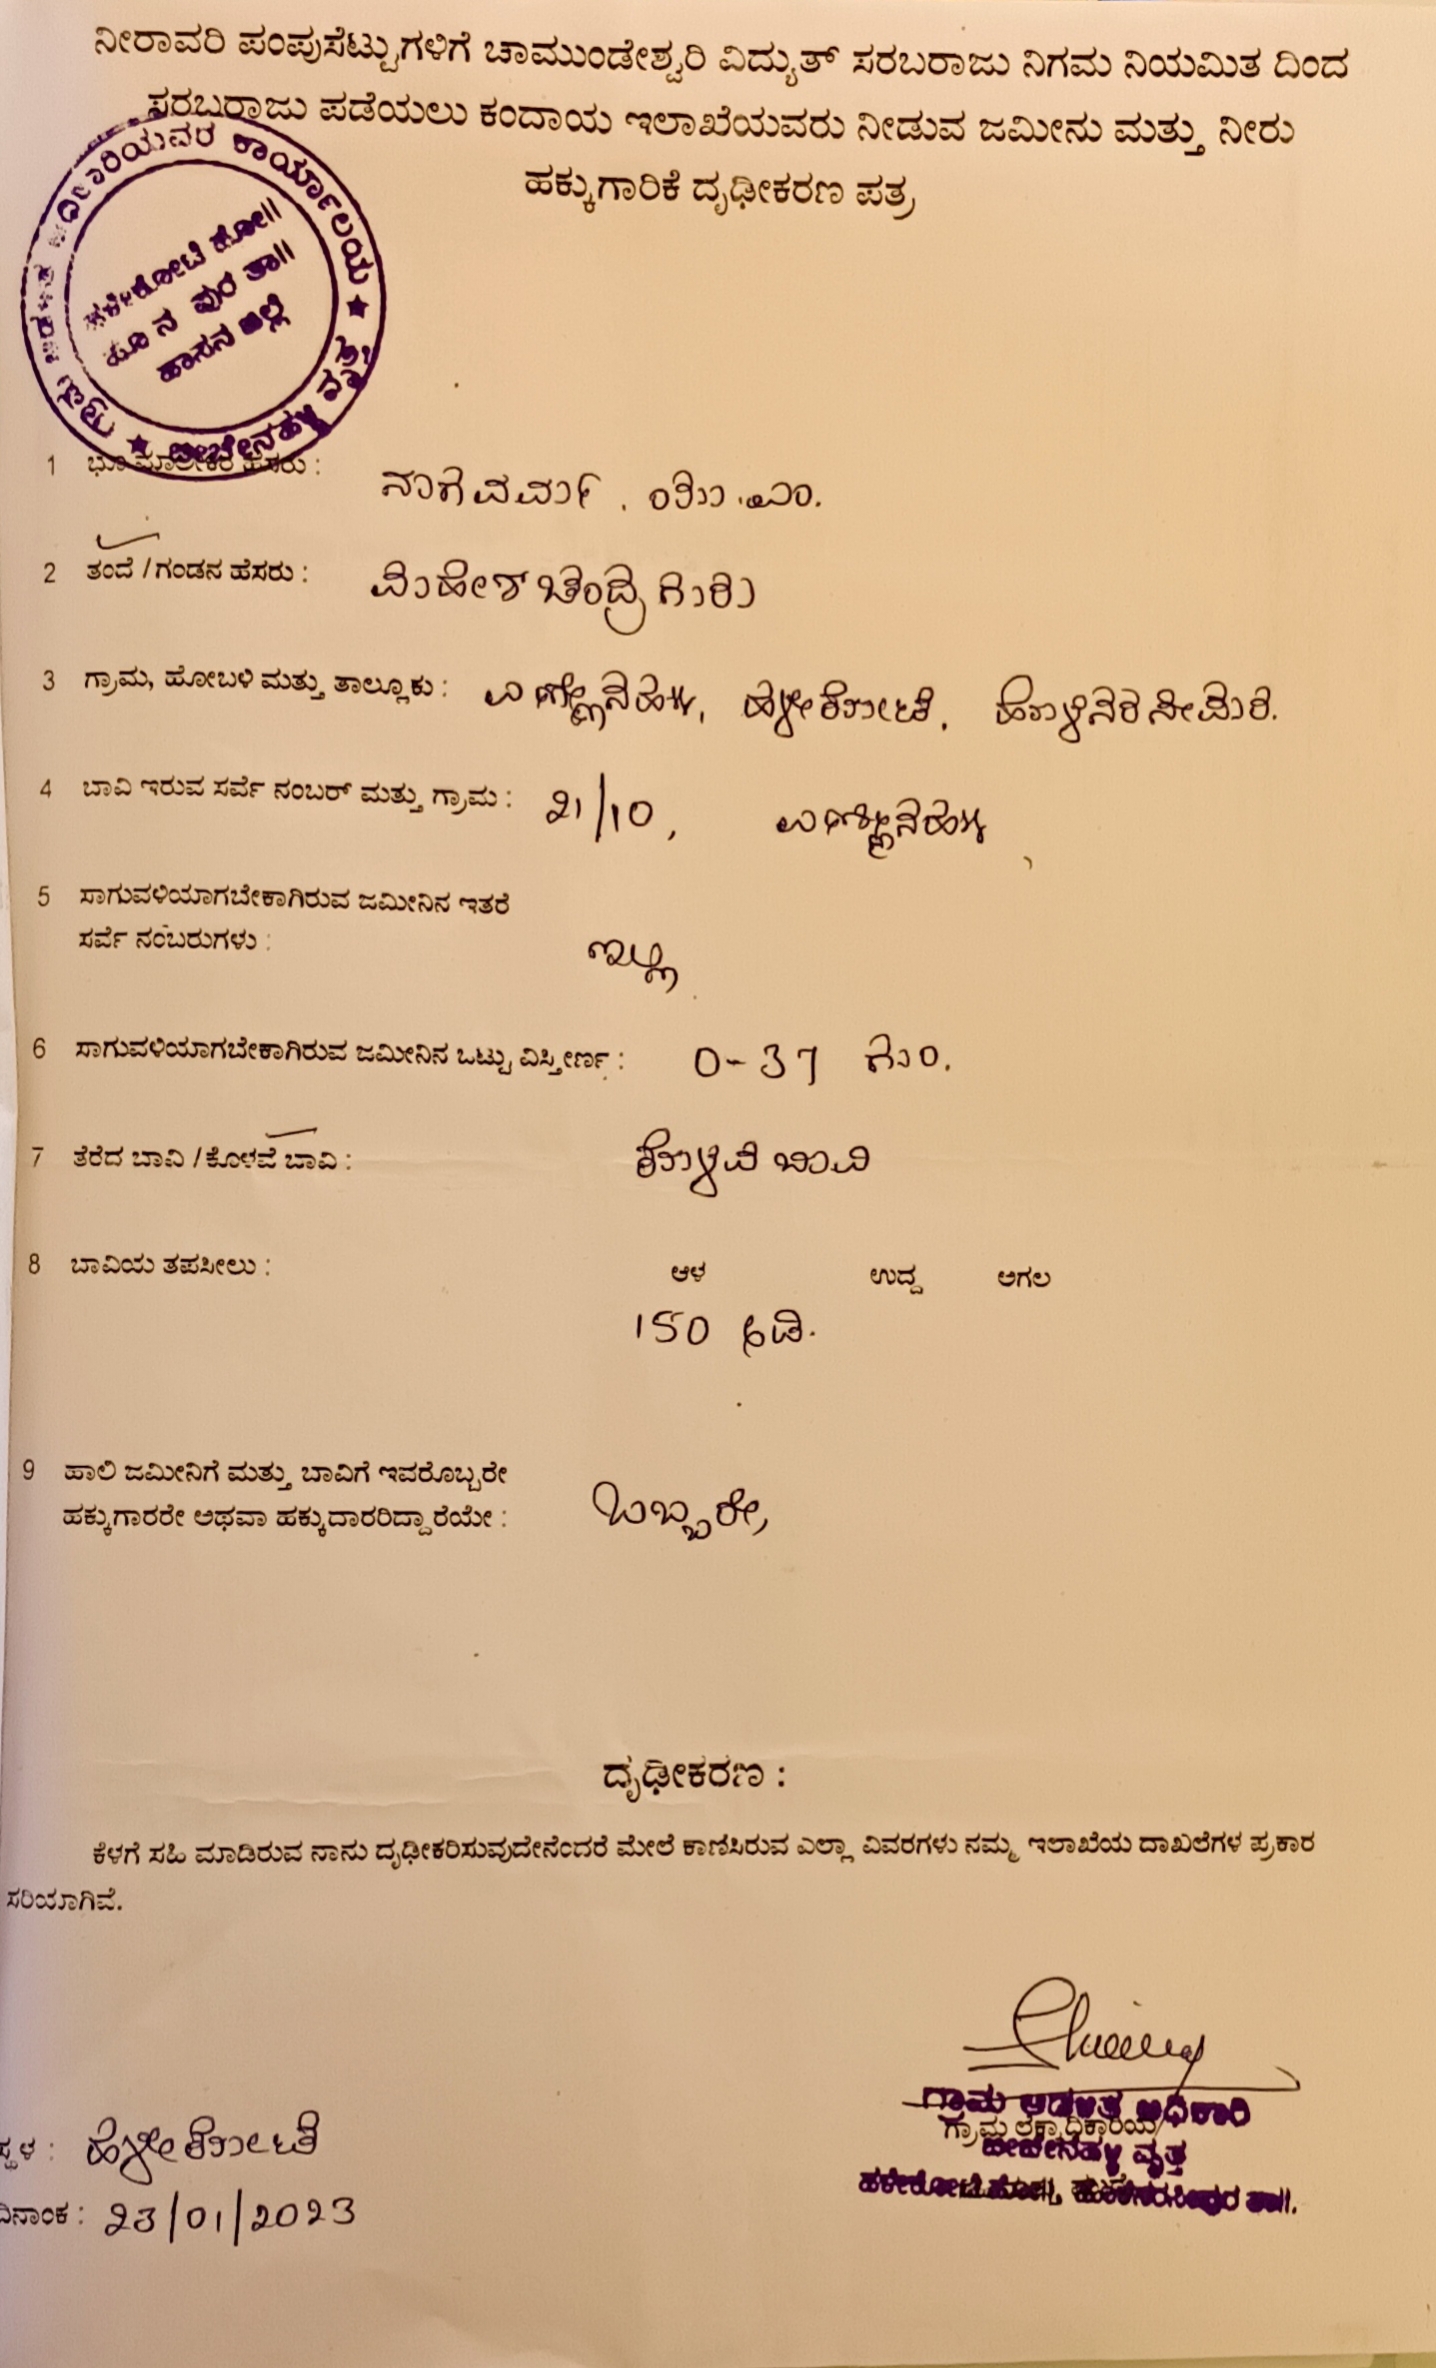 ನೀರಾವರಿ ಪಂಪುಸೆಟ್ಟುಗಳಿಗೆ ಚಾಮುಂಡೇಶ್ವರಿ ವಿದ್ಯುತ್ ಸರಬರಾಜು ನಿಗಮ ನಿಯಮಿತ ದಿಂದ
ಸರಬರಾಜು ಪಡೆಯಲು ಕಂದಾಯ ಇಲಾಖೆಯವರು ನೀಡುವ ಜಮೀನು ಮತ್ತು ನೀರು
ಹಕ್ಕುಗಾರಿಕೆ ದೃಢೀಕರಣ ಪತ್ರ
ಅಧಿಕಾರಿಯವರ ಕಾರ್ಯಾಲಯ
ಹಳೇಕೋಟೆ ಹೋ||
ಹೊ ನ ಪುರ ತಾ||
ಹಾಸನ ಜಿಲ್ಲೆ
1 ಭೂ ಮಾಲೀಕರ ಹೆಸರು : ನಾಗೆವರ್ಮ .
2 ತಂದೆ / ಗಂಡನ ಹೆಸರು : ಮಹೇಶ್ ಚಂದ್ರ ಗುರು
3 ಗ್ರಾಮ, ಹೋಬಳಿ ಮತ್ತು ತಾಲ್ಲೂಕು : ಹಳೇಕೋಟೆ, ಹೊಳೆನರಸೀಪುರ.
4 ಬಾವಿ ಇರುವ ಸರ್ವೆ ನಂಬರ್ ಮತ್ತು ಗ್ರಾಮ : 21/10,
5 ಸಾಗುವಳಿಯಾಗಬೇಕಾಗಿರುವ ಜಮೀನಿನ ಇತರೆ
ಸರ್ವೆ ನಂಬರುಗಳು : ಇಲ್ಲ
6 ಸಾಗುವಳಿಯಾಗಬೇಕಾಗಿರುವ ಜಮೀನಿನ ಒಟ್ಟು ವಿಸ್ತೀರ್ಣ : 0-37 ಗುಂ.
7 ತೆರೆದ ಬಾವಿ / ಕೊಳವೆ ಬಾವಿ : ಕೊಳವೆ ಬಾವಿ
8 ಬಾವಿಯ ತಪಸೀಲು : ಆಳ ಉದ್ದ ಅಗಲ
150 ಅಡಿ.
9 ಹಾಲಿ ಜಮೀನಿಗೆ ಮತ್ತು ಬಾವಿಗೆ ಇವರೊಬ್ಬರೇ
ಹಕ್ಕುಗಾರರೇ ಅಥವಾ ಹಕ್ಕುದಾರರಿದ್ದಾರೆಯೇ : ಒಬ್ಬರೇ
ದೃಢೀಕರಣ :
ಕೆಳಗೆ ಸಹಿ ಮಾಡಿರುವ ನಾನು ದೃಢೀಕರಿಸುವುದೇನೆಂದರೆ ಮೇಲೆ ಕಾಣಿಸಿರುವ ಎಲ್ಲಾ ವಿವರಗಳು ನಮ್ಮ ಇಲಾಖೆಯ ದಾಖಲೆಗಳ ಪ್ರಕಾರ
ಸರಿಯಾಗಿವೆ.
ಗ್ರಾಮ ಆಡಳಿತ ಅಧಿಕಾರಿ
ಗ್ರಾಮ ಲೆಕ್ಕಾಧಿಕಾರಿಯ
ವೃತ್ತ
ಹಳೇಕೋಟೆ ಹೋ||, ಹೊಳೆನರಸೀಪುರ ತಾ||.
ಸ್ಥಳ : ಹಳೇಕೋಟೆ
ದಿನಾಂಕ : 23/01/2023